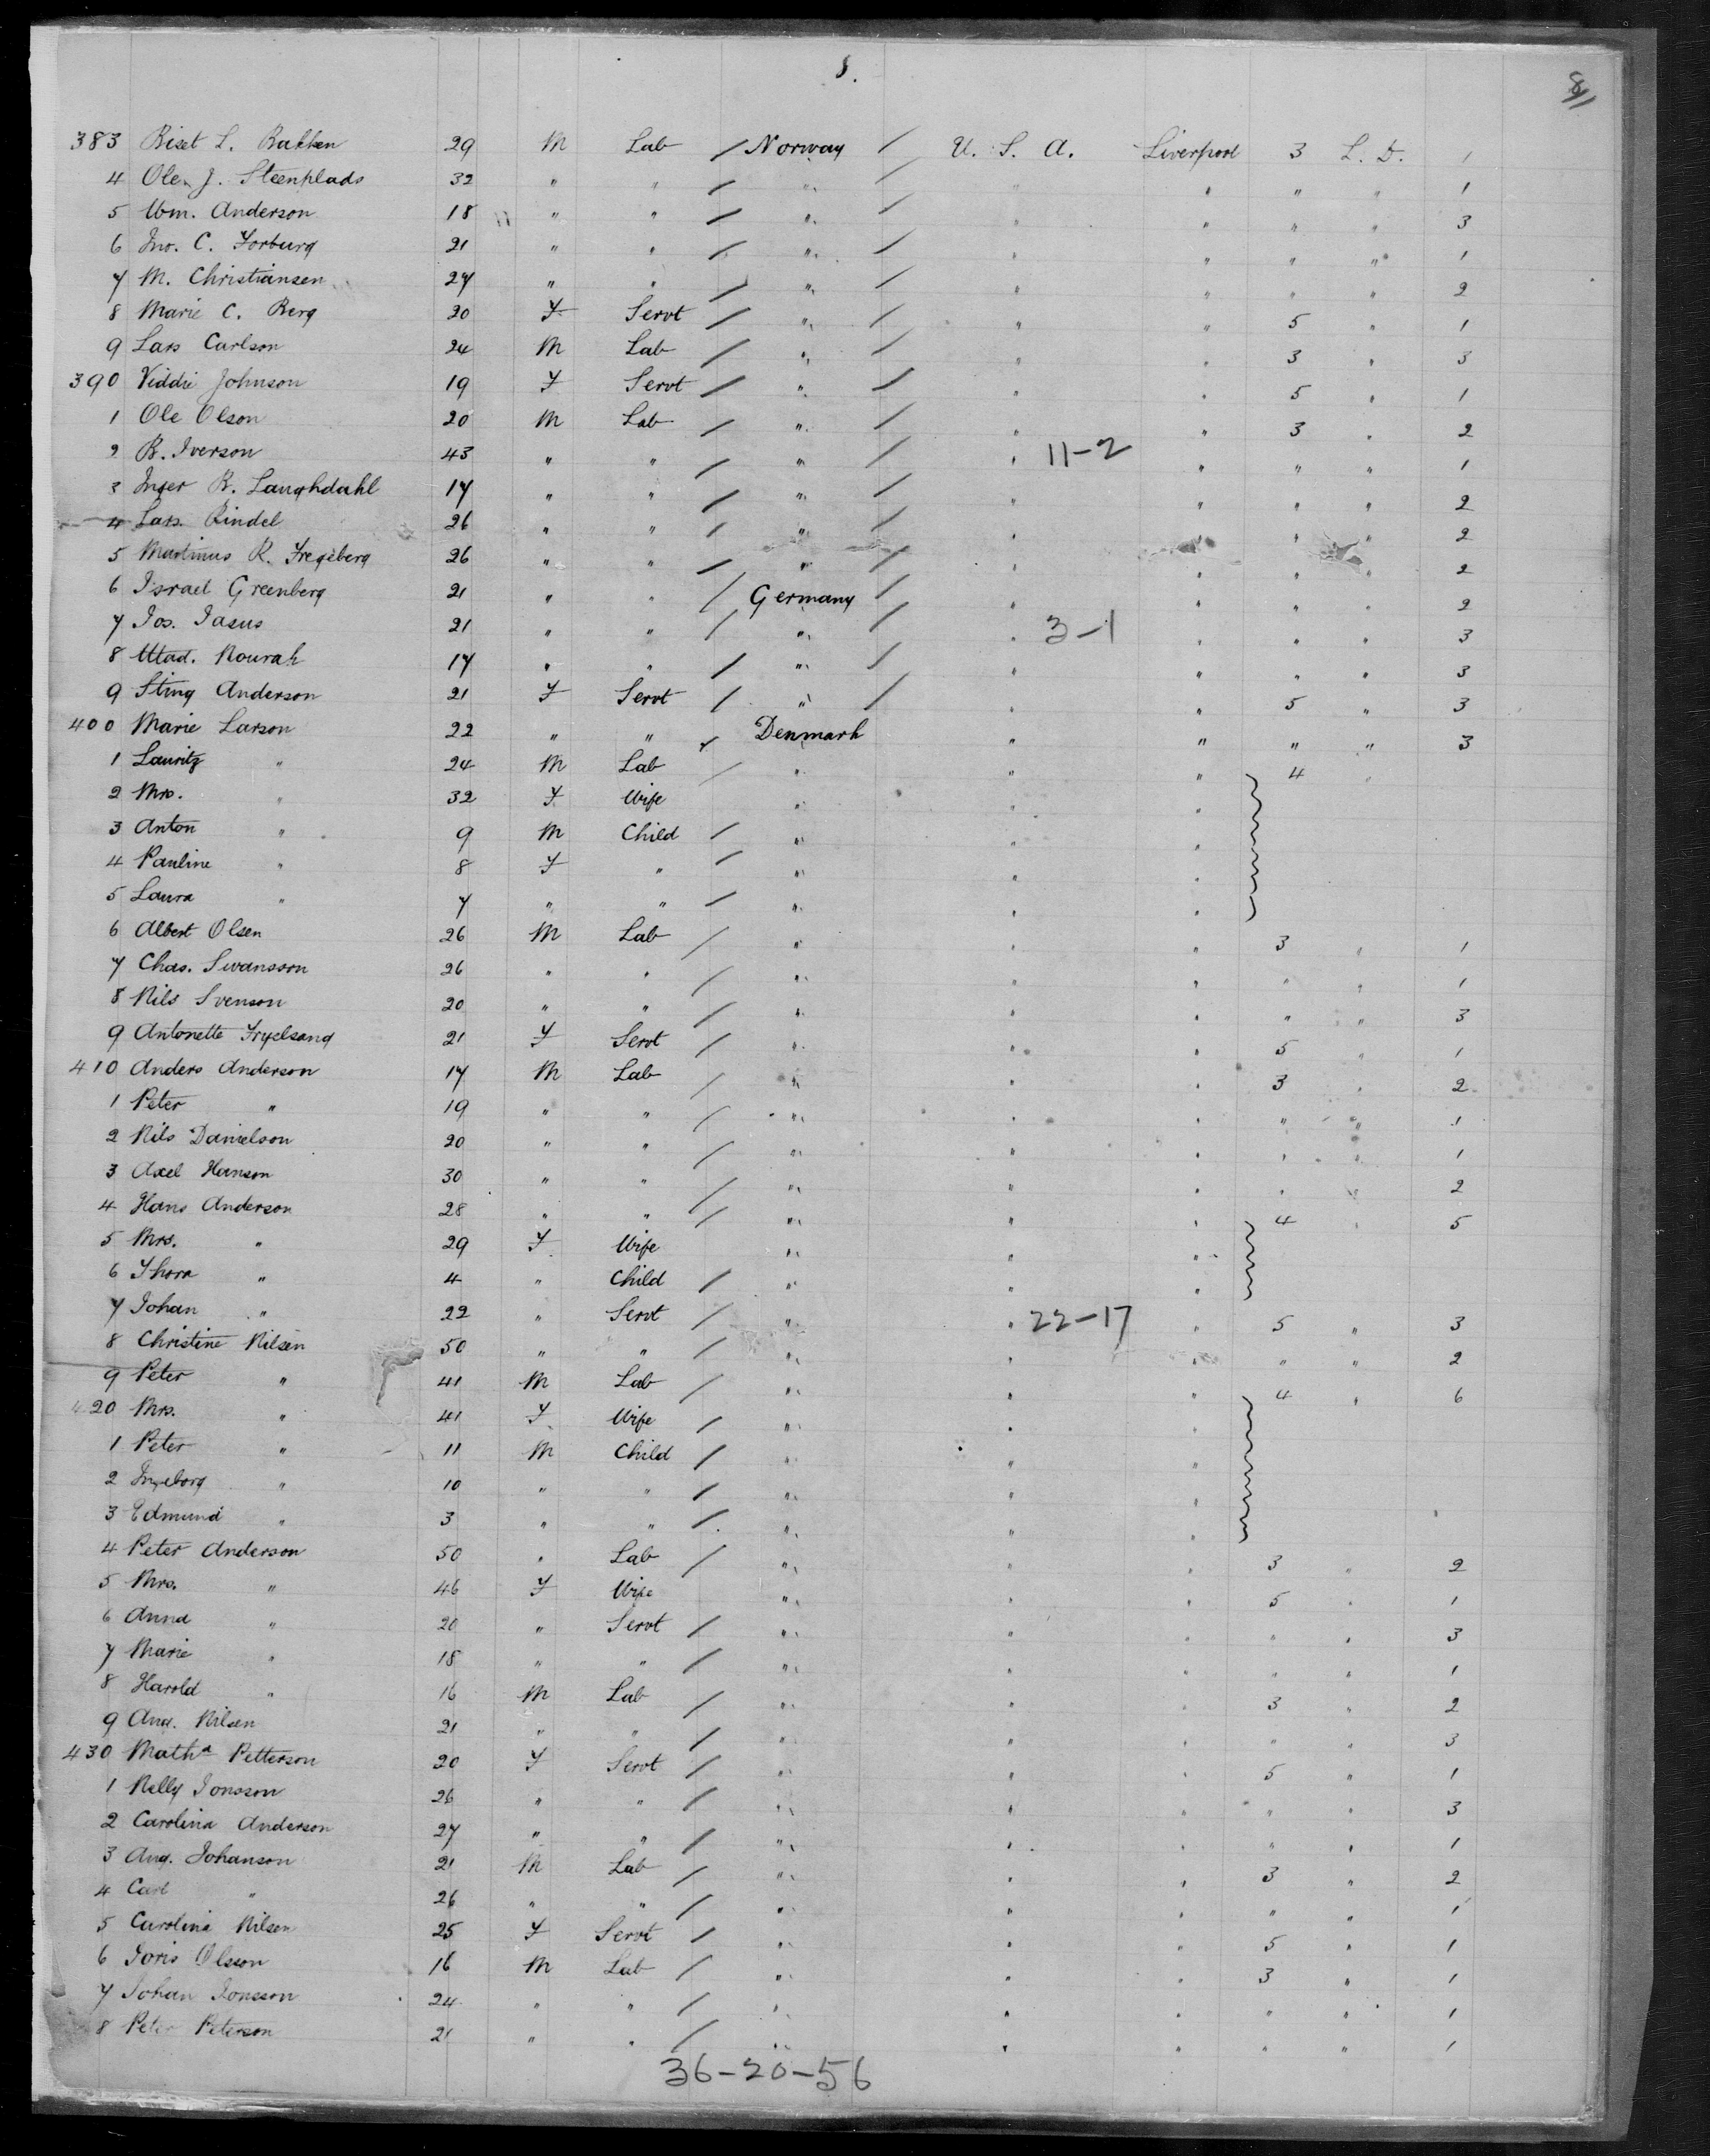 8.
8
383 Biset L. Bakken 29 M Lab / Norway / U. S. A. Liverpool 3 L. D. 1
4 Ole J. Steenplads 32 " " / " / " " " " 1
5 Wm. Anderson 18 " " / " / " " " " 3
6 Jno. C. Forburg 21 " " / " / " " " " 1
7 M. Christiansen 27 " " / " / " " " " 2
8 Marie C. Berg 20 F Servt / " / " " 5 " 1
9 Lars Carlson 24 M Lab / " / " " 3 " 3
390 Viddie Johnson 19 F Servt / " / " " 5 " 1
1 Ole Olson 20 M Lab / " / " " 3 " 2
2 B. Iverson 43 " " / " / " 11-2 " " " 1
3 Inger B. Laughdahl 17 " " / " / " " " " 2
4 Lars. Rindel 26 " " / " / " " " " 2
5 Martinus R. Fregeberg 26 " " / " / " " " " 2
6 Israel Greenberg 21 " " / Germany / " " " " 2
7 Jos. Jasus 21 " " / " / " 3-1 " " " 3
8 Mad. Nourah 17 " " / " / " " " " 3
9 Sting Anderson 21 F Servt / " / " " 5 " 3
400 Marie Larson 22 " " / Denmark " " " " 3
1 Lauritz " 24 M Lab / " " " 4 "
2 Mrs. " 32 F Wife " " "
3 Anton " 9 M Child / " " "
4 Pauline " 8 F " / " " "
5 Laura " 7 " " / " " "
6 Albert Olsen 26 M Lab / " " " 3 " 1
7 Chas. Swansson 26 " " / " " " " " 1
8 Nils Svenson 20 " " / " " " " " 3
9 Antonette Fryelsang 21 F Servt / " " " 5 " 1
410 Anders Anderson 17 M Lab / " " " 3 " 2
1 Peter " 19 " " / " " " " " 1
2 Nils Danielson 20 " " / " " " " " 1
3 Axel Hanson 30 " " / " " " " " 2
4 Hans Anderson 28 " " / " " " 4 " 5
5 Mrs. " 29 F Wife " " "
6 Thora " 4 " Child / " " "
7 Johan " 22 " Servt / " " 22-17 " 5 " 3
8 Christine Nilsen 50 " " / " " " " " 2
9 Peter " 41 M Lab / " " " 4 " 6
420 Mrs. " 41 F Wife / " " "
1 Peter " 11 M Child / " " "
2 Ingeborg " 10 " " / " " "
3 Edmund " 3 " " / " " "
4 Peter Anderson 50 " Lab / " " " 3 " 2
5 Mrs. " 46 F Wife " " " 5 " 1
6 Anna " 20 " Servt / " " " " " 3
7 Marie " 18 " " / " " " " " 1
8 Harold " 16 M Lab / " " " 3 " 2
9 And. Nilsen 21 " " / " " " " " 3
430 Matha Petterson 20 F Servt / " " " 5 " 1
1 Nelly Jonsson 26 " " / " " " " " 3
2 Carolina Anderson 27 " " / " " " " " 1
3 Aug. Johanson 21 M Lab / " " " 3 " 2
4 Carl " 26 " " / " " " " " 1
5 Carolina Nilsen 25 F Servt / " " " 5 " 1
6 Joris Olsson 16 M Lab / " " " 3 " 1
7 Johan Jonsson 24 " " / " " " " " 1
8 Peter Peterson 21 " " / " " " " " 1
36-20-56